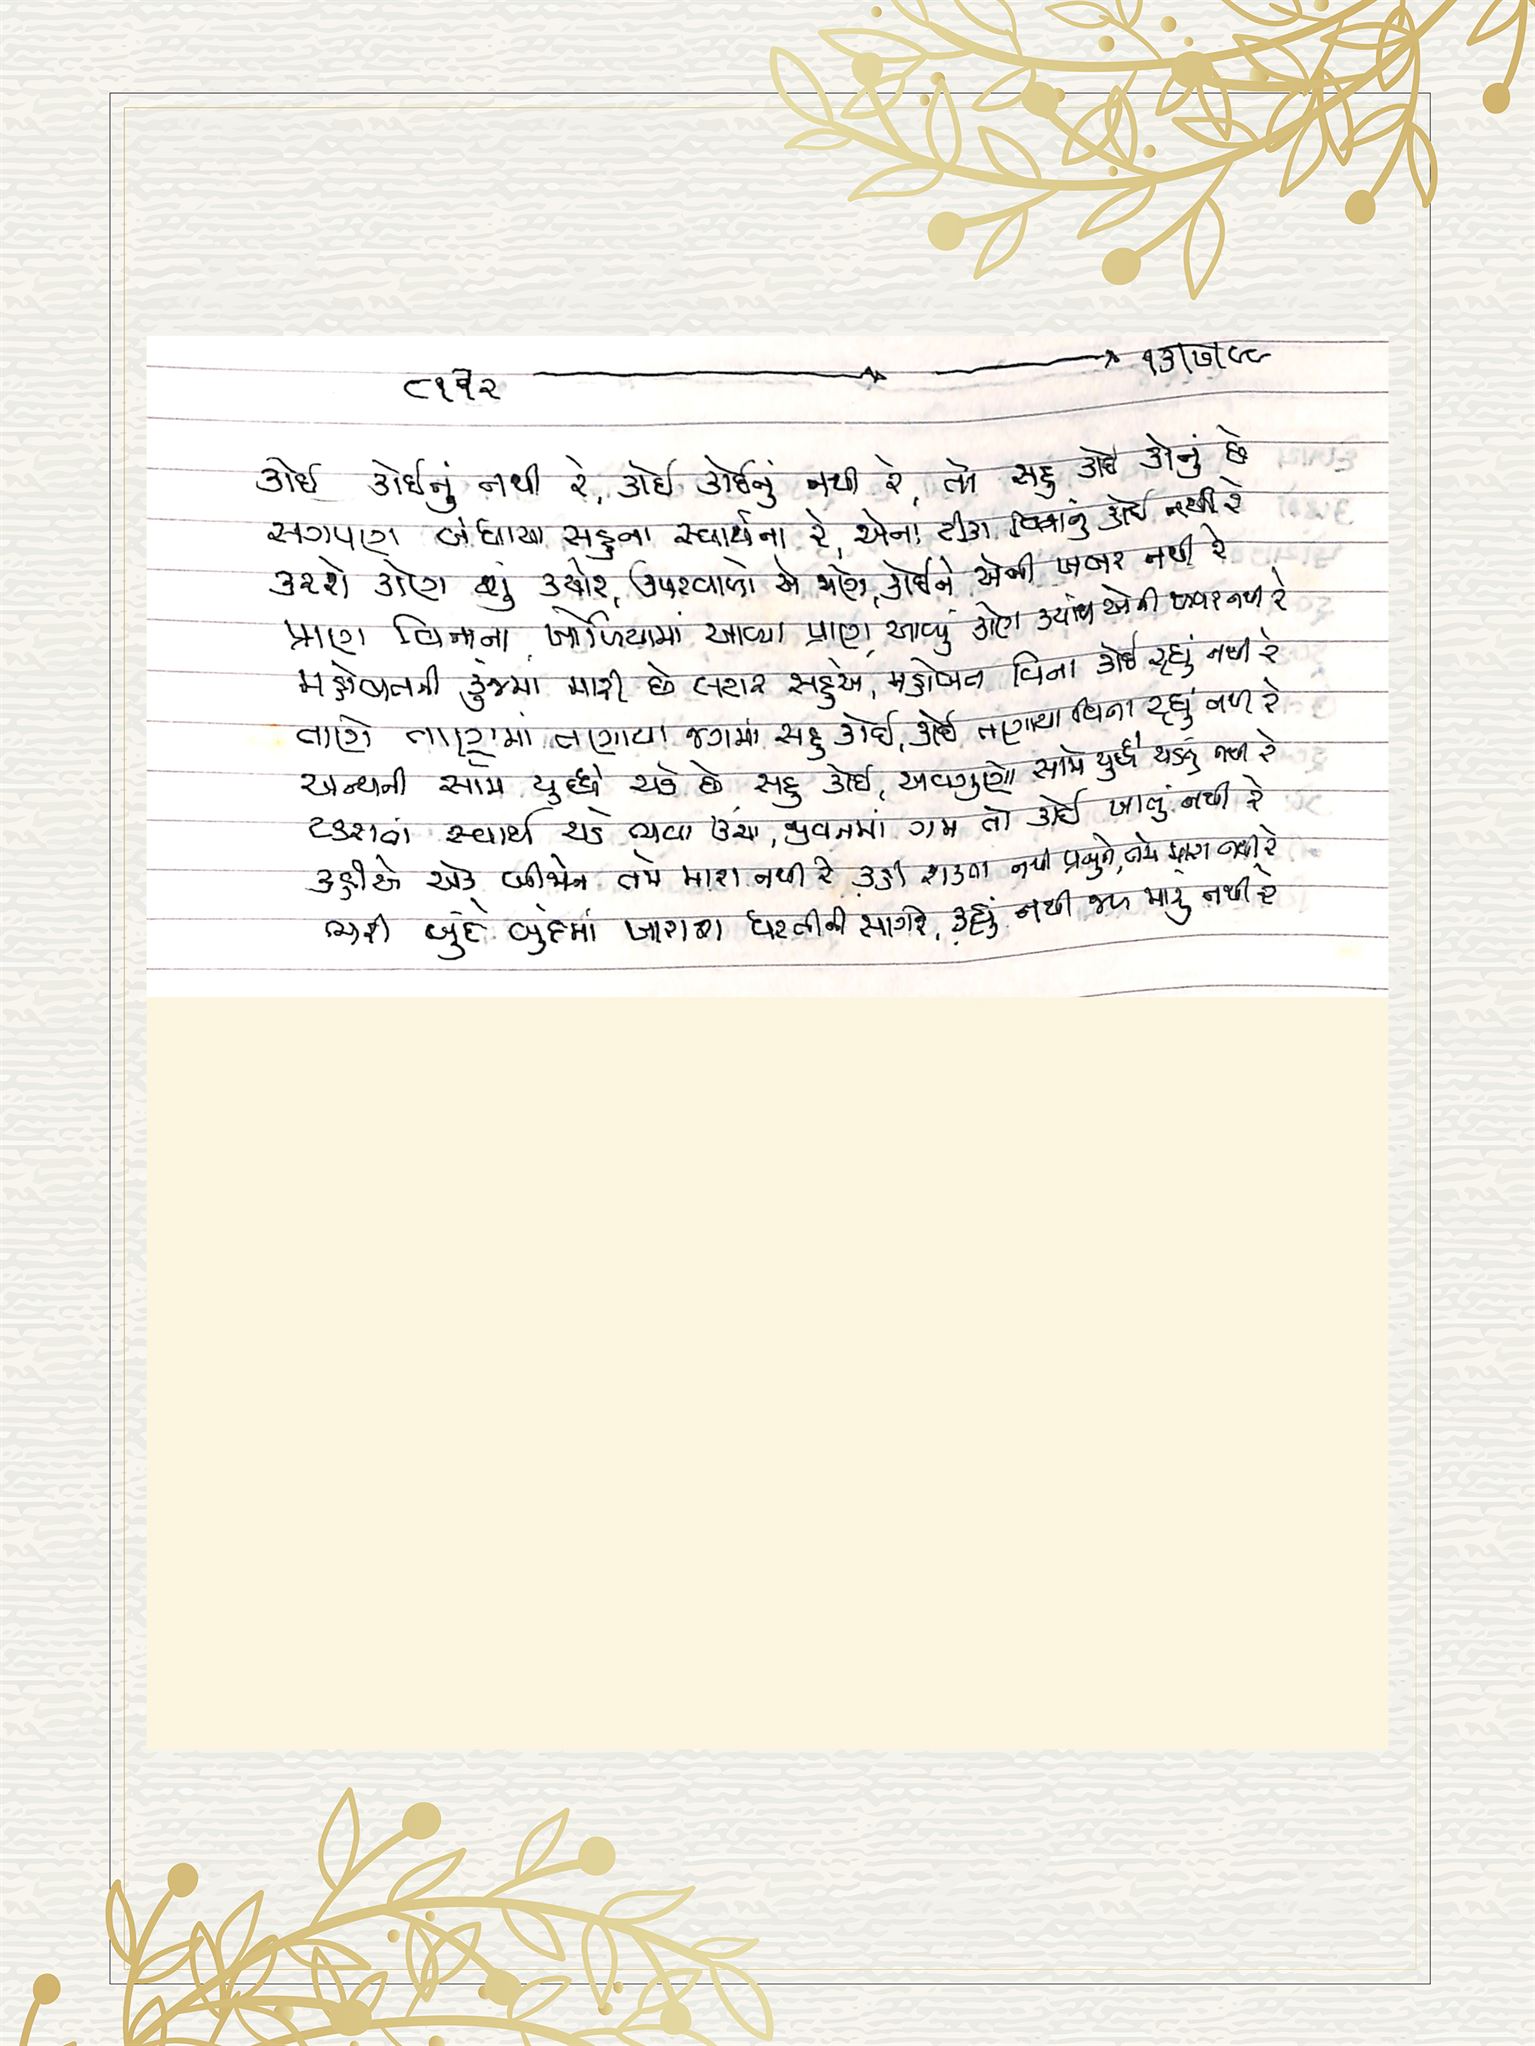 ૮૧૧૨ ૧૩/૭/૯૯
કોઈ કોઈનું નથી રે, કોઈ કોઈનું નથી રે, તો સહુ કોઈ કોનું છે
સગપણ બંધાયા સહુના સ્વાર્થના રે, એના ટીકા વિનાનું કોઈ નથી રે
કરશે કોણ શું ક્યારે, ઉપરવાળો એ જાણે, કોઈને એની ખબર નથી રે
પ્રાણ વિનાના ખોળિયામાં આવ્યા પ્રાણ, આવ્યું કોણ ક્યાંથી એની ખબર નથી રે
મહોબ્બતની કુંજમાં મારી છે લટાર સહુએ, મહોબ્બત વિના કોઈ રહ્યું નથી રે
તાણે તાણમાં તણાયા જગમાં સહુ કોઈ, કોઈ તણાયા વિના રહ્યું નથી રે
અન્યની સામે યુદ્ધે ચડે છે સહુ કોઈ, અવગુણો સામે યુદ્ધે ચડયું નથી રે
ટકરાતાં સ્વાર્થ ચડે ભવા ઉંચા, જીવનમાં ગમ તો કોઈ ખાતું નથી રે
કહીએ એક બીજાને તમે મારા નથી રે કહી શક્તા નથી પ્રભુને, તમે મારા નથી રે
ભરી બુંદે બુંદમાં ખારાશ ધરતીની સાગરે, કહ્યું નથી જળ મારું નથી રે